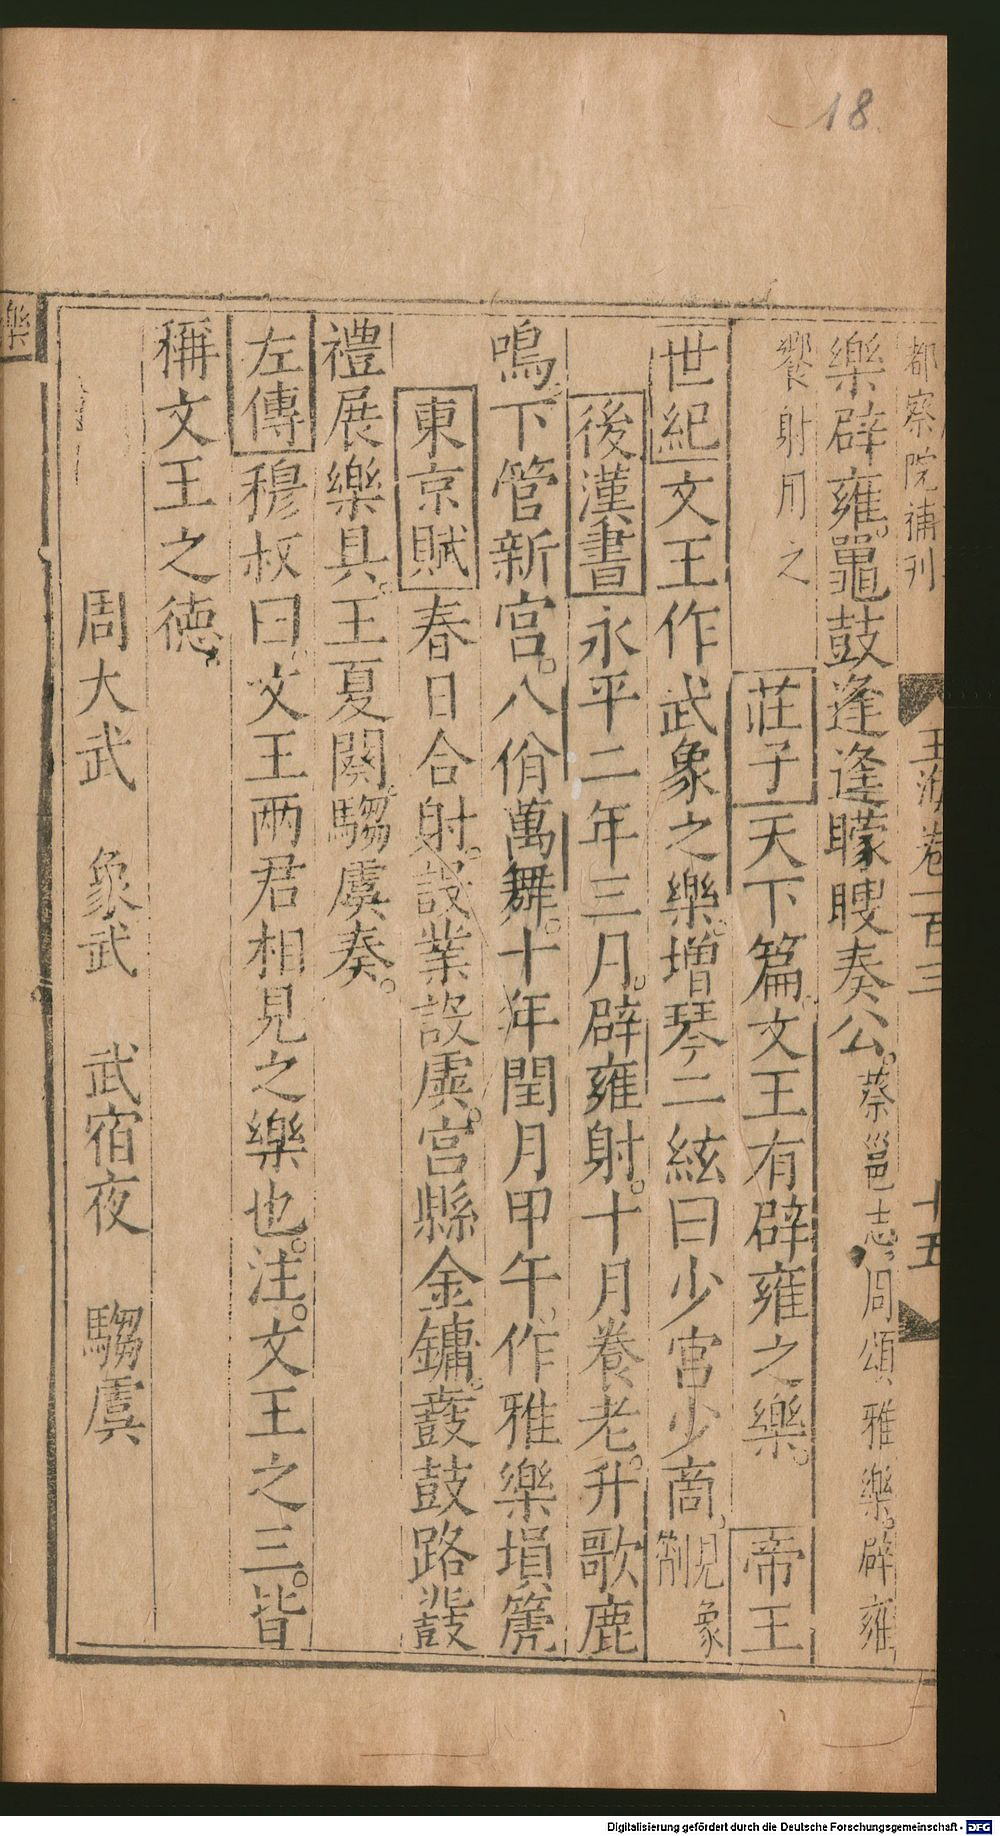 18
都察院補刊
玉海卷一百三 十五
樂辟雍鼉鼓逢逢矇瞍奏公蔡邕志周頌雅樂辟雍
饗射用之 莊子天下篇文王有辟雍之樂 帝王
世紀文王作武象之樂增琴二絃曰少宮少商見象箾
後漢書永平二年三月辟雍射十月養老升歌鹿
鳴下管新宮八佾萬舞十年閏月甲午作雅樂塤箎
東京賦春日合射設業設虡宮縣金鏞鼖鼓路鼗
禮展樂具王夏闋騶虞奏
左傳穆叔曰文王兩君相見之樂也注文王之三皆
稱文王之德
周大武 象武 武宿夜 騶虞
樂
Digitalisierung gefördert durch die Deutsche Forschungsgemeinschaft - DFG